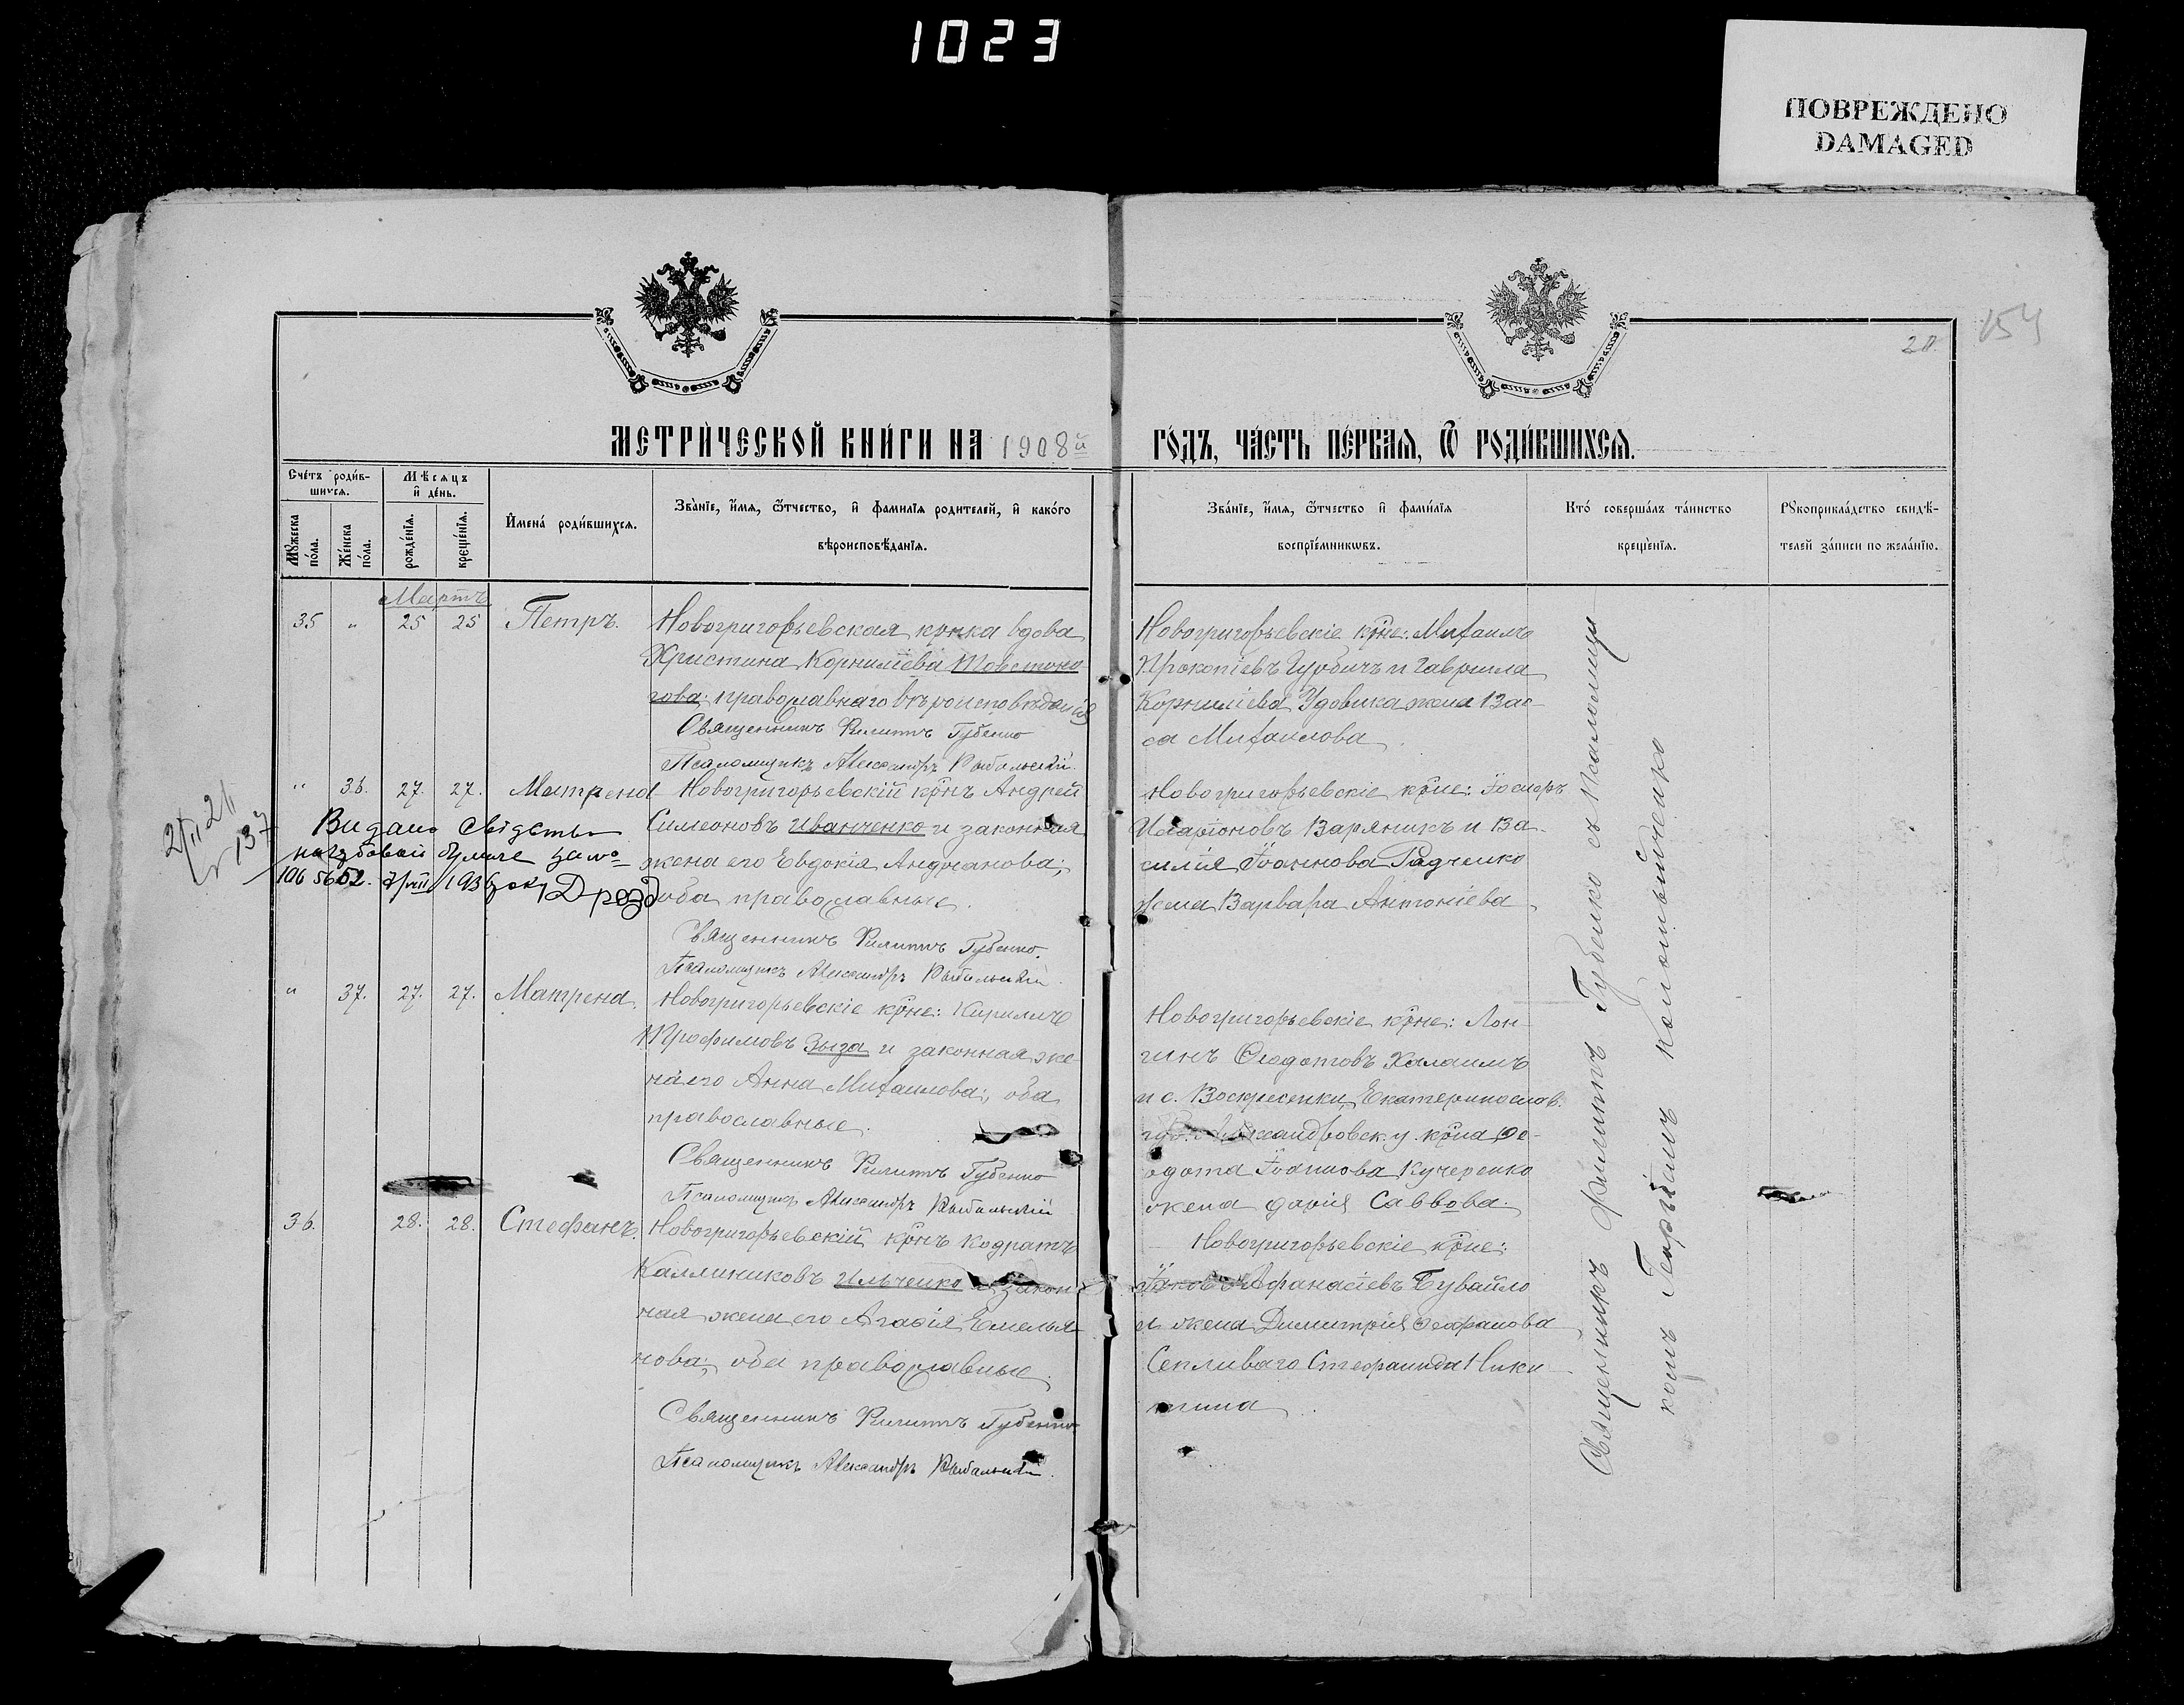 1023
ПОВРЕЖДЕНО
DAMAGED
20.
154
МЕТРИ́ЧЕСКОЙ КНИ́ГИ НА 1908й ГО́ДЪ, ЧА́СТЬ ПЕ́РВАЯ, Ѿ РОДИ́ВШИХСЯ.
Сче́тъ роди́вшихся.
Му́жеска по́ла.
Же́нска по́ла.
Мѣсяцъ и де́нь.
рожде́нїя.
креще́нїя.
Имена́ роди́вшихся.
Зва́нїе, и́мя, ѻ́тчество, и фами́лїя родителей, и како́го
вѣроисповѣ́данїя.
Зва́нїе, и́мя, ѻ́тчество и фами́лїя
воспрїе́мниковъ.
Кто́ соверша́лъ та́инство
креще́нїя.
Рꙋкоприкла́дство свидѣ́-
телей за́писи по жела́нїю.
Мартъ
35 " 25 25 Петръ.
Новогригорьевская крнка вдова
Христина Корнилїева Товстоно
гова; православнаго вѣроисповѣданїя
Священникъ Филиппъ Губенко
Псаломщикъ Александръ Рыбальскій.
Новогригорьевскіе крне: Михаилъ
Прокопіевъ Гурбичъ и Гаврила
Корнилїева Удовика жена Вас-
са Михаилова.
" 36. 27. 27. Матрена
Новогригорьевскій крнъ Андрей
Симеоновъ Иванченко и законная
жена его Евдокія Андреанова;
оба православные.
Священникъ Филиппъ Губенко.
Псаломщикъ Александръ Рыбальскій.
Новогригорьевскіе крне: Іосифъ
Иларіоновъ Варяникъ и Ва-
силія Іоаннова Радченко
жена Варвара Антоніева
21/II 21
137
Видано свідоть
гербовый за №
106 5652. 1936 року Дрозд
" 37. 27. 27. Матрена.
Новогригорьевскіе крне: Кириллъ
Трофимовъ Зыза и законная же-
на его Анна Михаилова; оба
православные.
Священникъ Филиппъ Губенко
Псаломщикъ Александръ Рыбальскій
Новогригорьевскіе крне: Лон-
гинъ Ѳеодотовъ Халаимъ
и с. Воскресенки, Екатеринослав.
губ. Александровск. у. крна Ѳе-
одота Іоаннова Кучеренко
жена Дарія Саввова.
36. 28. 28. Стефанъ.
Новогригорьевскій крнъ Кодратъ
Каллиниковъ Ильченко и закон-
ная жена его Агафія Емелья-
нова; оба православные.
Священникъ Филиппъ Губенко
Псаломщикъ Александръ Рыбальскій.
Новогригорьевскіе крне:
Іаковъ Афанасіевъ Бувайло
и жена Димитрія Стефанова
Сепливаго Стефанида Ники-
тина
Священникъ Филиппъ Губенко съ псаломщи
комъ Георгіемъ Коломыйченко